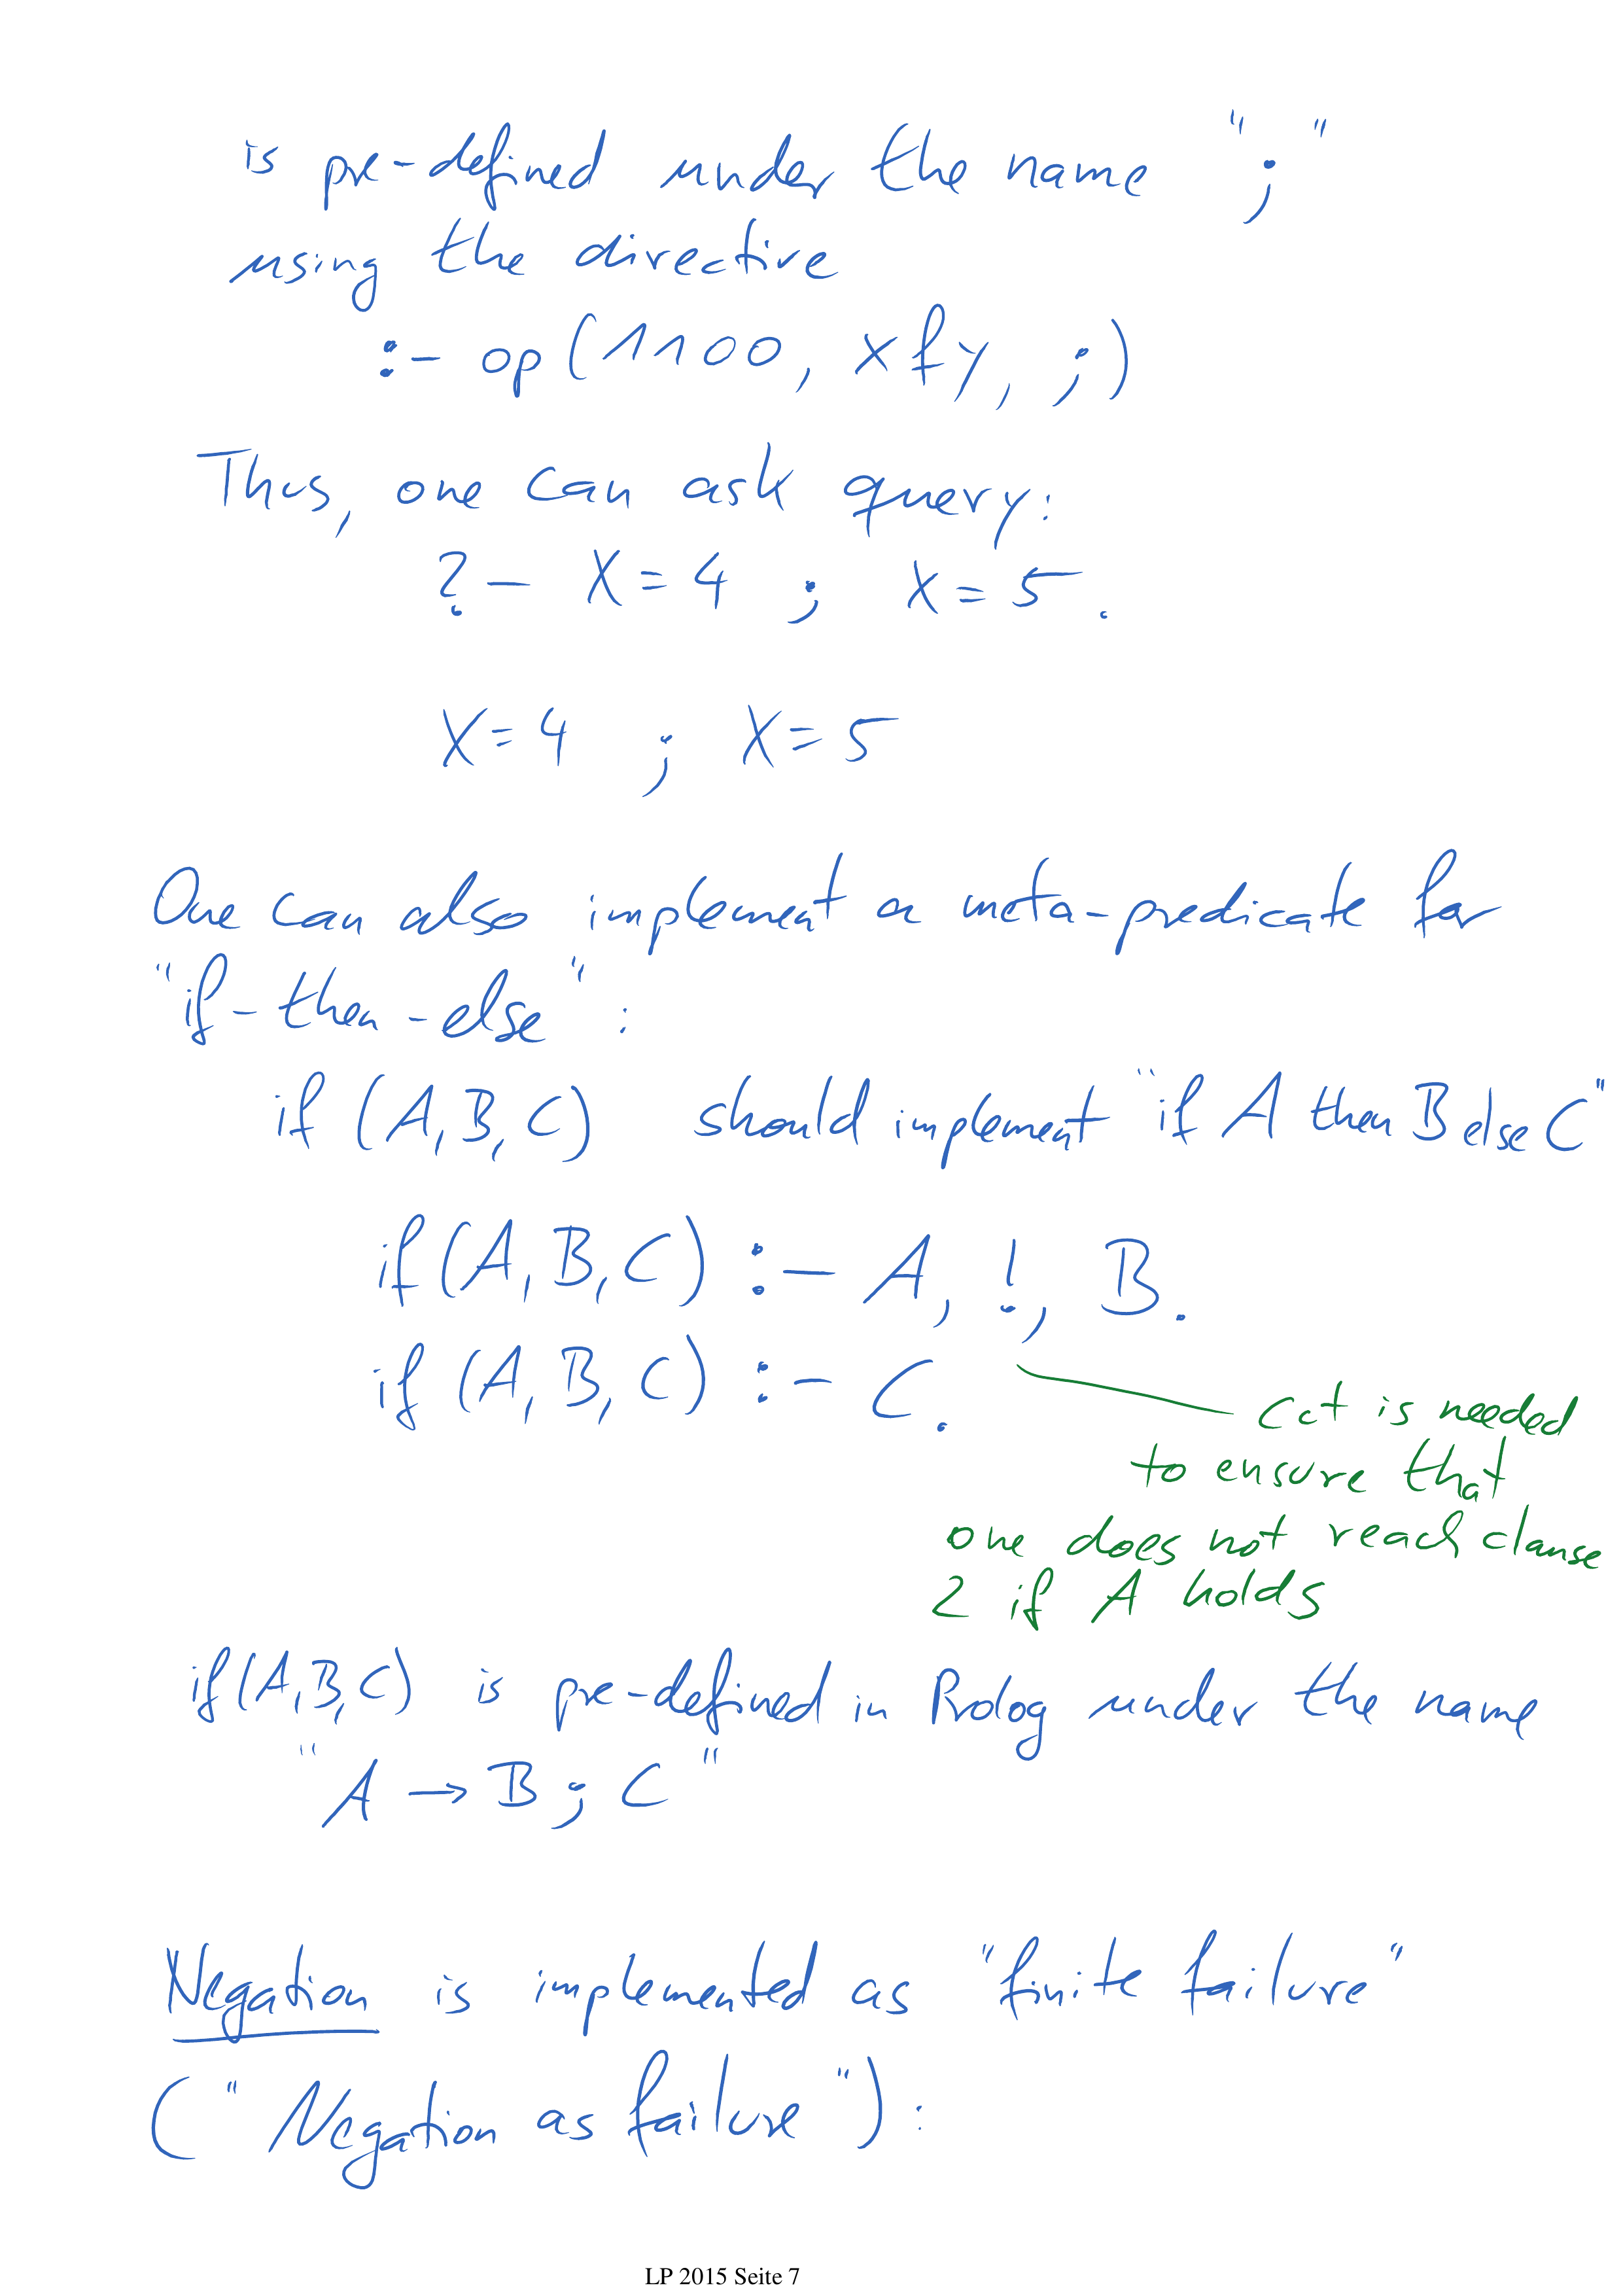 is pre-defined under the name ";"
using the directive
:- op(1100, xfy, ;)
Thus, one can ask query:
?- X=4 ; X=5.
X=4 ; X=5
One can also implement a meta-predicate for
"if-then-else":
if (A,B,C) should implement "if A then B else C"
if(A,B,C) :- A, !, B.
if (A,B,C) :- C.
Cut is needed
to ensure that
one does not reach clause
2 if A holds
if(A,B,C) is pre-defined in Prolog under the name
"A → B ; C"
Negation is implemented as "finite failure"
("Negation as failure"):
LP 2015 Seite 7